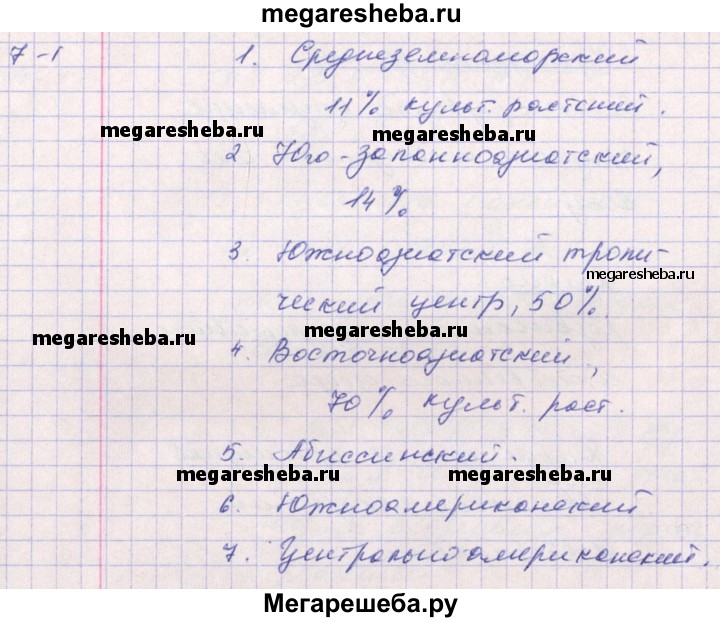 megaresheba.ru
7-1 1. Средиземноморский
11% культ. ростский.
megaresheba.ru megaresheba.ru
2 Юго-Западноазиатский,
14%
3. Южноазиатский тропи-
megaresheba.ru
ческий центр, 50%.
megaresheba.ru megaresheba.ru
4. Восточноазиатский,
70% культ. раст.
5. Абиссинский.
megaresheba.ru megaresheba.ru
6. Южноамериканский
7. Центральноамериканский.
Мегарешеба.ру